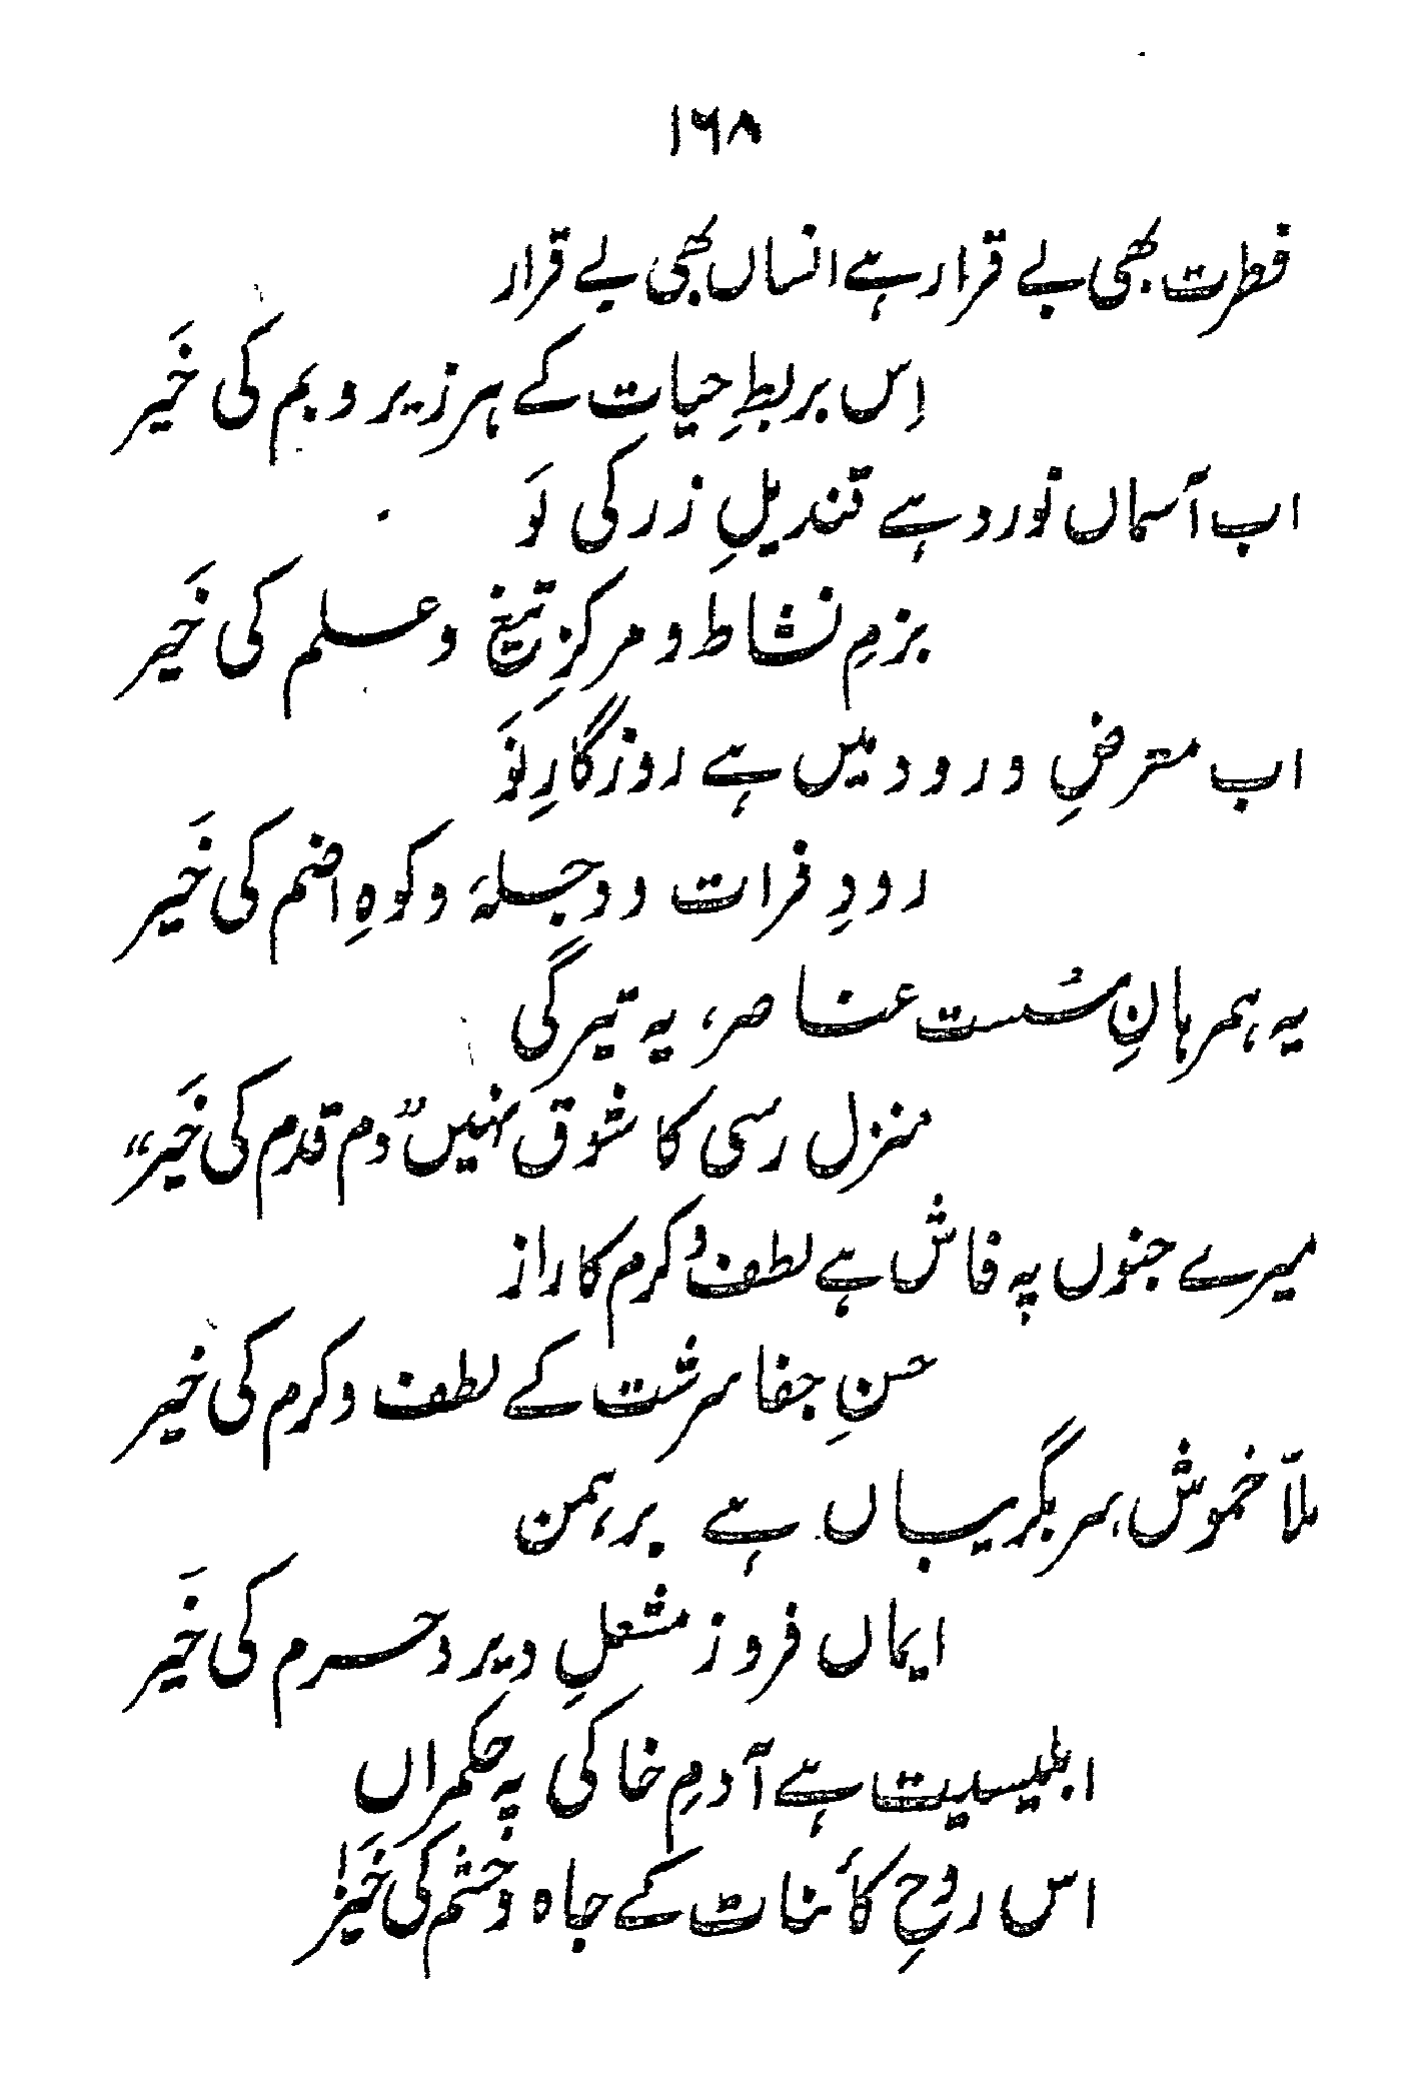 ۱۶۸
فطرت بھی بے قرار ہے انساں بھی بے قرار
اِس بربطِ حیات کے ہر زیر و بم کی خَیر
اب آسماں نورد ہے قندیلِ زر کی لَو
بزمِ نشاط و مرکزِ تیغ و علم کی خَیر
اب معرضِ ورود میں ہے روزگارِ نَو
رودِ فرات و دجلہَ و کوہِ اضم کی خَیر
یہ ہمرہانِ سُست عناصر، یہ تیرگی
منزل رسی کا شوق نہیں "دم قدم کی خَیر"
میرے جنوں پہ فاش ہے لطف و کرم کا راز
حسنِ جفا سرشت کے لطف و کرم کی خیر
ملّا خموش، سر بگریباں ہے برہمن
ایماں فروز مشعلِ دیر و حرم کی خَیر
ابلیسیت ہے آدمِ خاکی پہ حکمراں
اس روحِ کائنات کے جاہ و حشم کی خَیر!